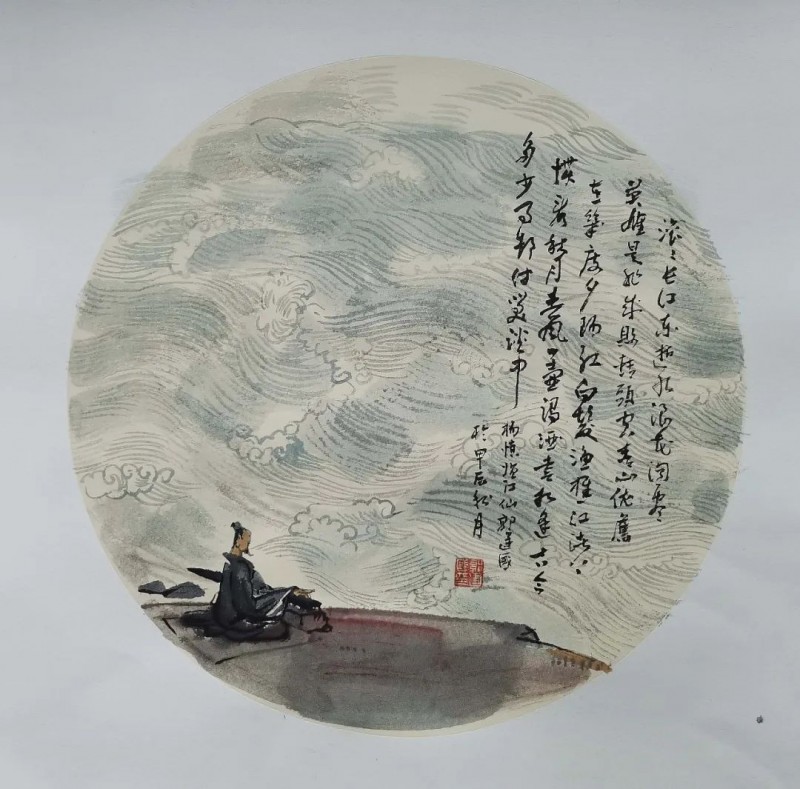 滚〻长江东逝水浪花淘尽
英雄是非成敗转頭空青山依舊
在幾度夕陽红白髮渔樵江渚上
惯看秋月春风一壺濁酒喜相逢古今
多少事都付笑谈中
杨慎临江仙
於甲辰秋月